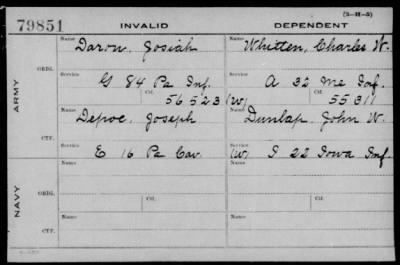 (3-H-5)
79851 INVALID DEPENDENT
Name Name
Daron, Josiah Whitten, Charles W.
ORIG. Service Service
G 84 Pa Inf. A 32 Me Inf.
Ctf. 56523 (W) Ctf. 55311
ARMY
Name Name
Depoe, Joseph Dunlap, John W.
CTF. Service Service
E 16 Pa Cav. (W) I 22 Iowa Inf.
Name Name
NAVY
ORIG. Service Service
Ctf. Ctf.
Name Name
CTF.